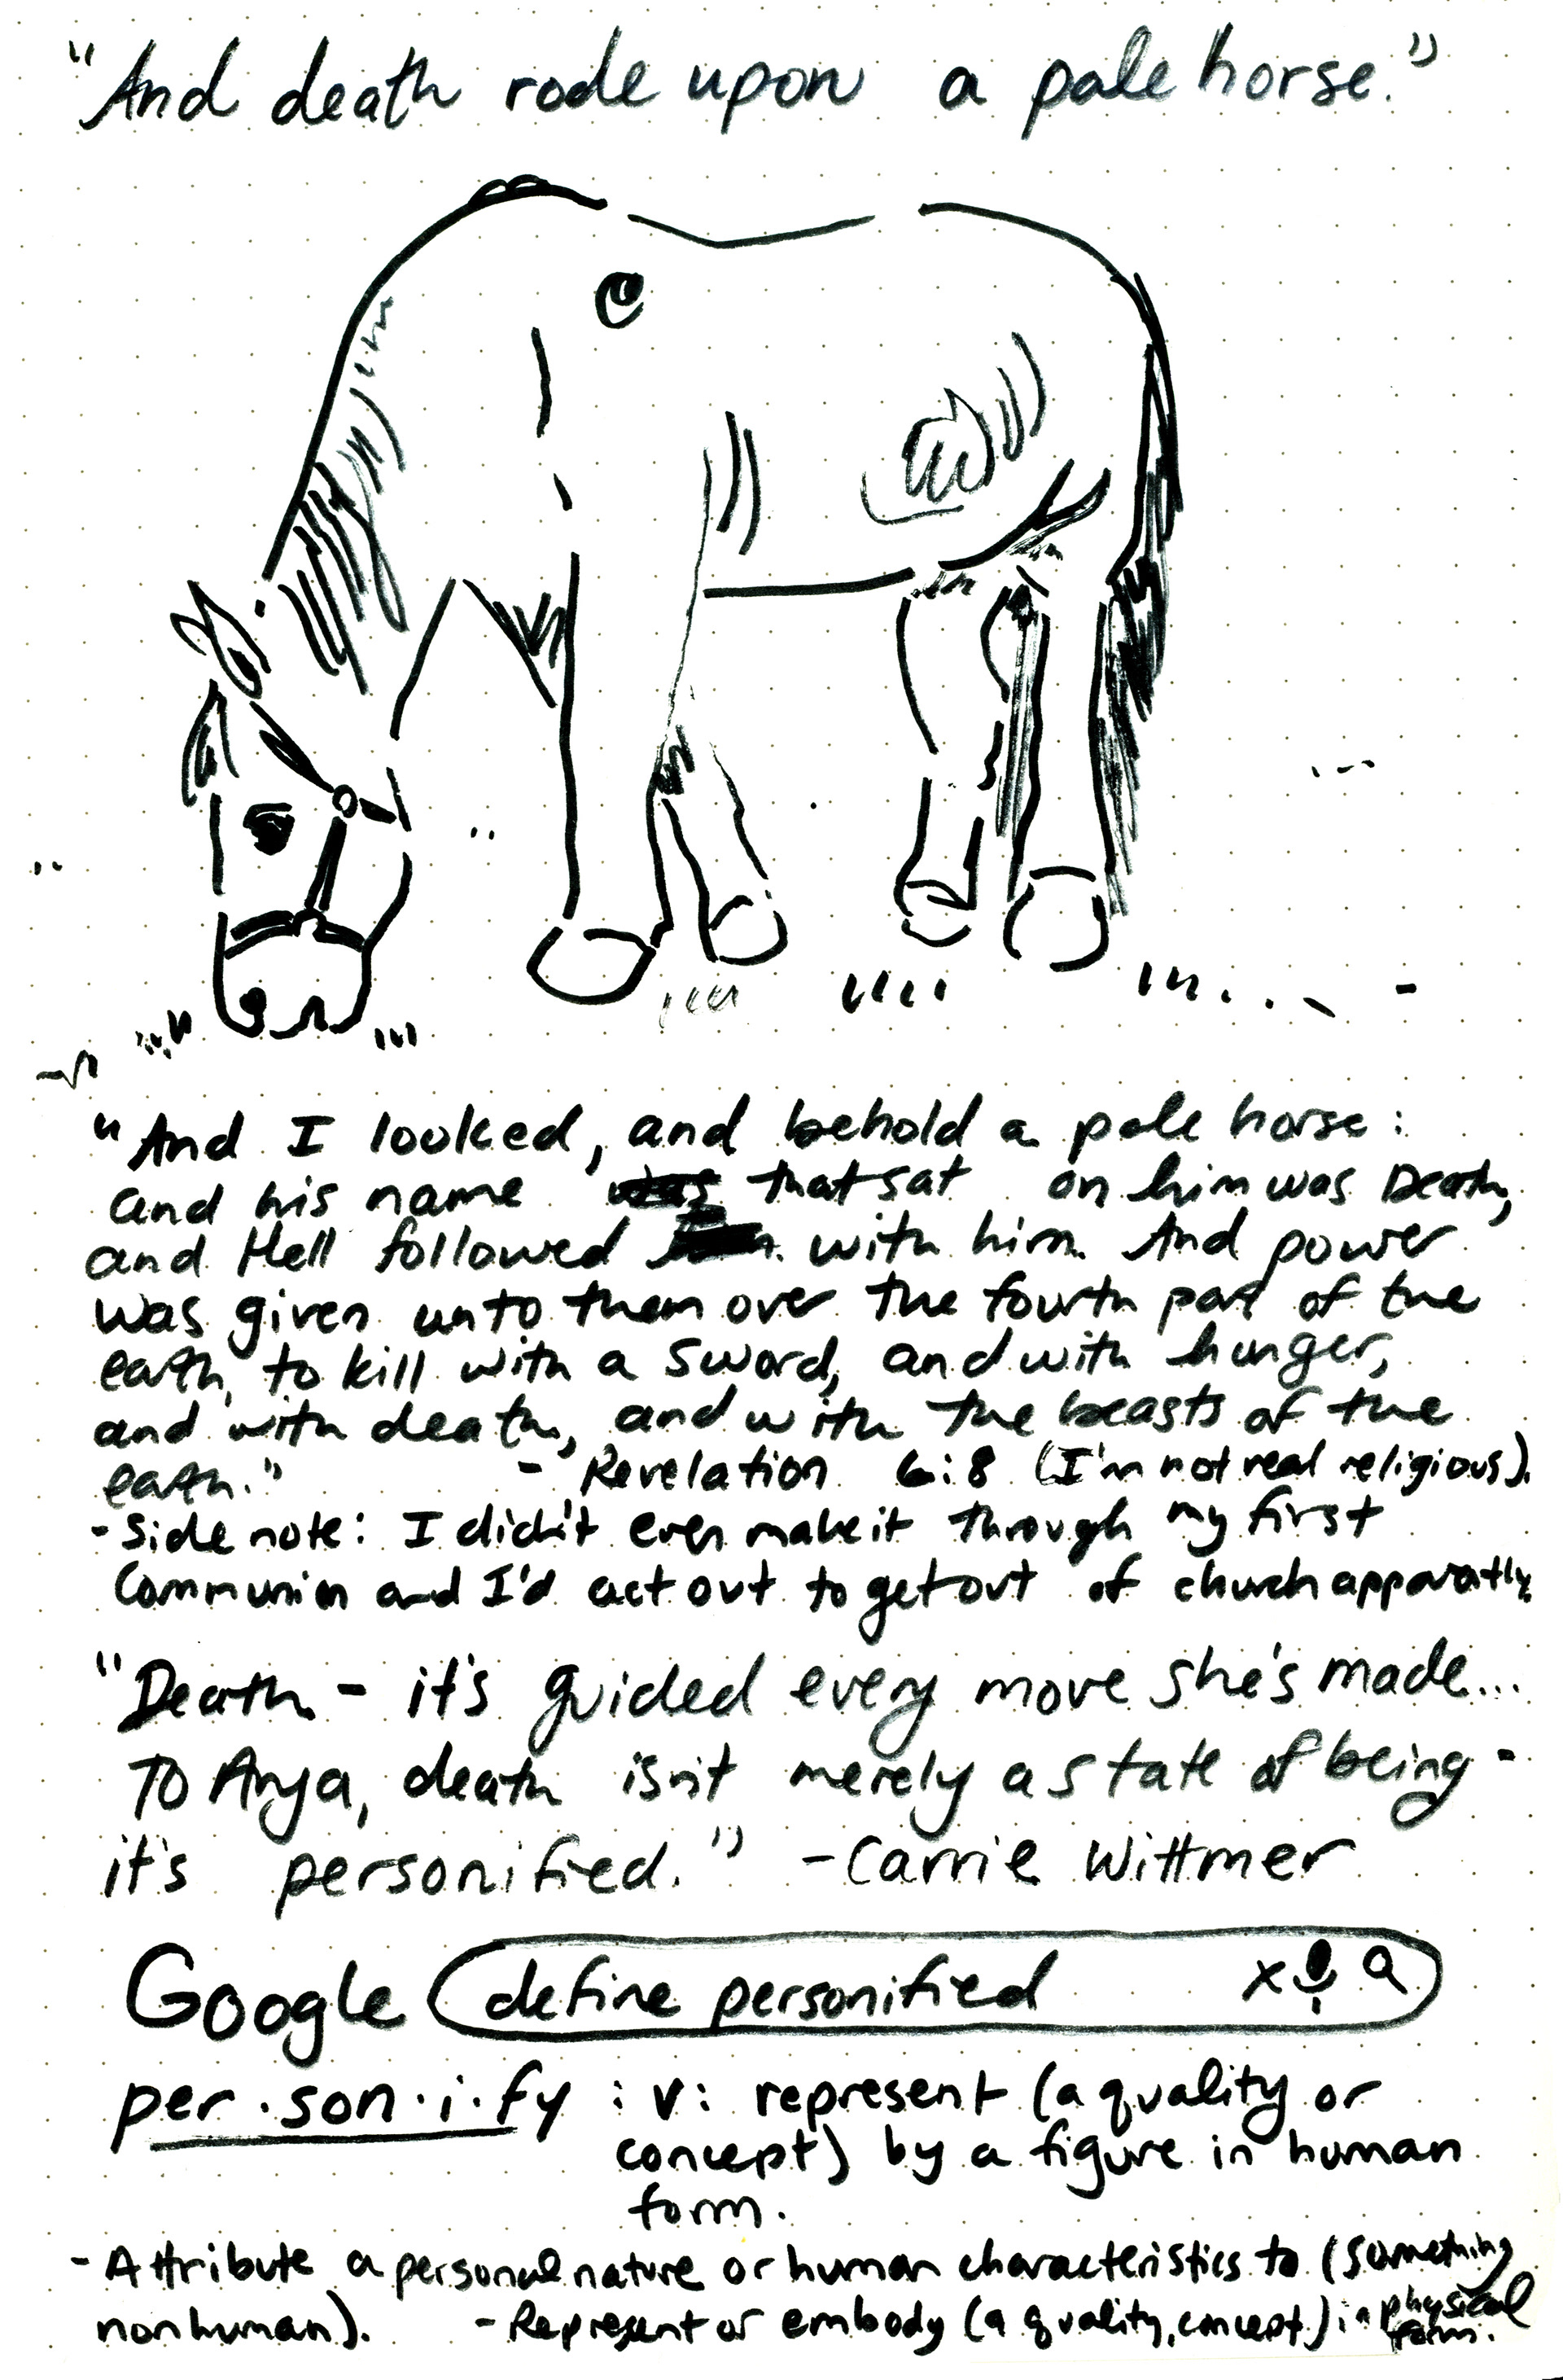 "And death rode upon a pale horse."
"And I looked, and behold a pale horse:
and his name was that sat on him was Death,
and Hell followed with him. And power
was given unto them over the fourth part of the
earth, to kill with a sword, and with hunger,
and with death, and with the beasts of the
earth."
- Revelation 6:8 (I'm not real religious).
- Side note: I didn't even make it through my first
Communion and I'd act out to get out of church apparently.
"Death - it's guided every move she's made...
To Arya, death isn't merely a state of being -
it's personified." - Carrie Wittmer
Google define personified x
per·son·i·fy : v: represent (a quality or
concept) by a figure in human
form.
- Attribute a personal nature or human characteristics to (something
nonhuman). - Represent or embody (a quality, concept) in physical
form.